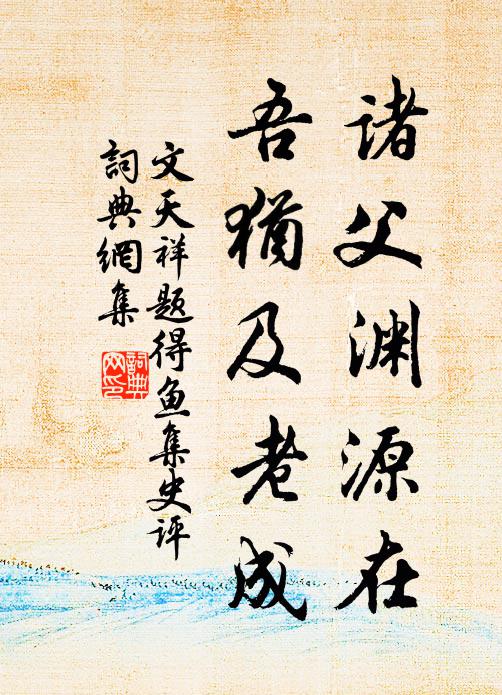 诸父渊源在
吾犹及老成
文天祥题得鱼集史评
詞典網集
詞典网印